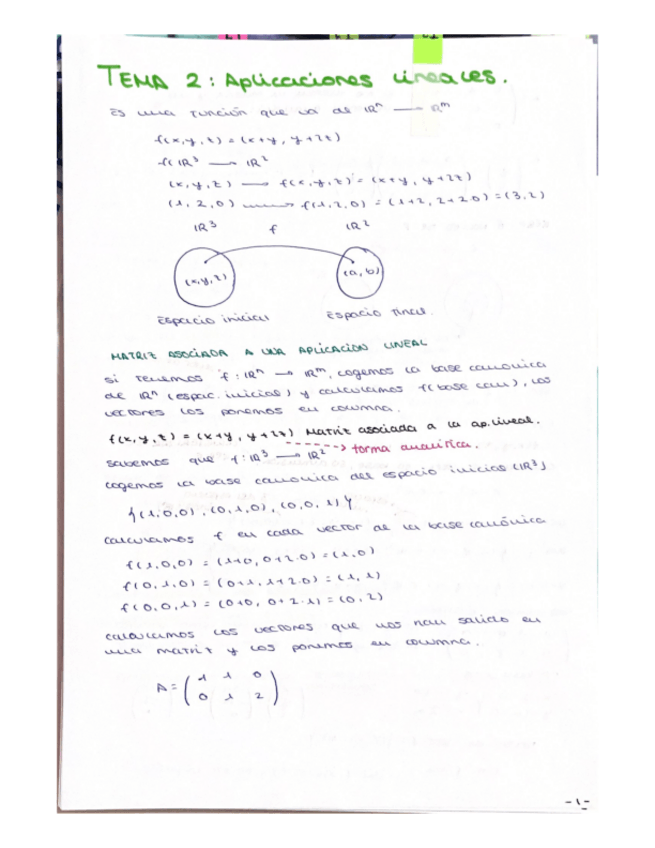 TEMA 2: Aplicaciones lineales.
Es una función que va de IRⁿ ⟶ IRᵐ
f(x,y,z) = (x+y, y+2z)
f: IR³ ⟶ IR²
(x,y,z) ⟶ f(x,y,z) = (x+y, y+2z)
(1,2,0) ⟶ f(1,2,0) = (1+2, 2+2·0) = (3,2)
IR³ f IR²
(x,y,z) (a,b)
Espacio inicial Espacio final.
MATRIZ ASOCIADA A UNA APLICACION LINEAL
Si tenemos f: IRⁿ ⟶ IRᵐ, cogemos la base canónica
de IRⁿ (espac. inicial) y calculamos f(base can), los
vectores los ponemos en columna.
f(x,y,z) = (x+y, y+2z) Matriz asociada a la ap. lineal.
-----> forma analítica.
sabemos que f: IR³ ⟶ IR²
cogemos la base canonica del espacio inicial (IR³)
{(1,0,0), (0,1,0), (0,0,1)}
calculamos f en cada vector de la base canónica
f(1,0,0) = (1+0, 0+2·0) = (1,0)
f(0,1,0) = (0+1, 1+2·0) = (1,1)
f(0,0,1) = (0+0, 0+2·1) = (0,2)
los vectores que nos han salido en
una matriz y los ponemos en columna.
A = ( 1 1 0
0 1 2 )
-1-